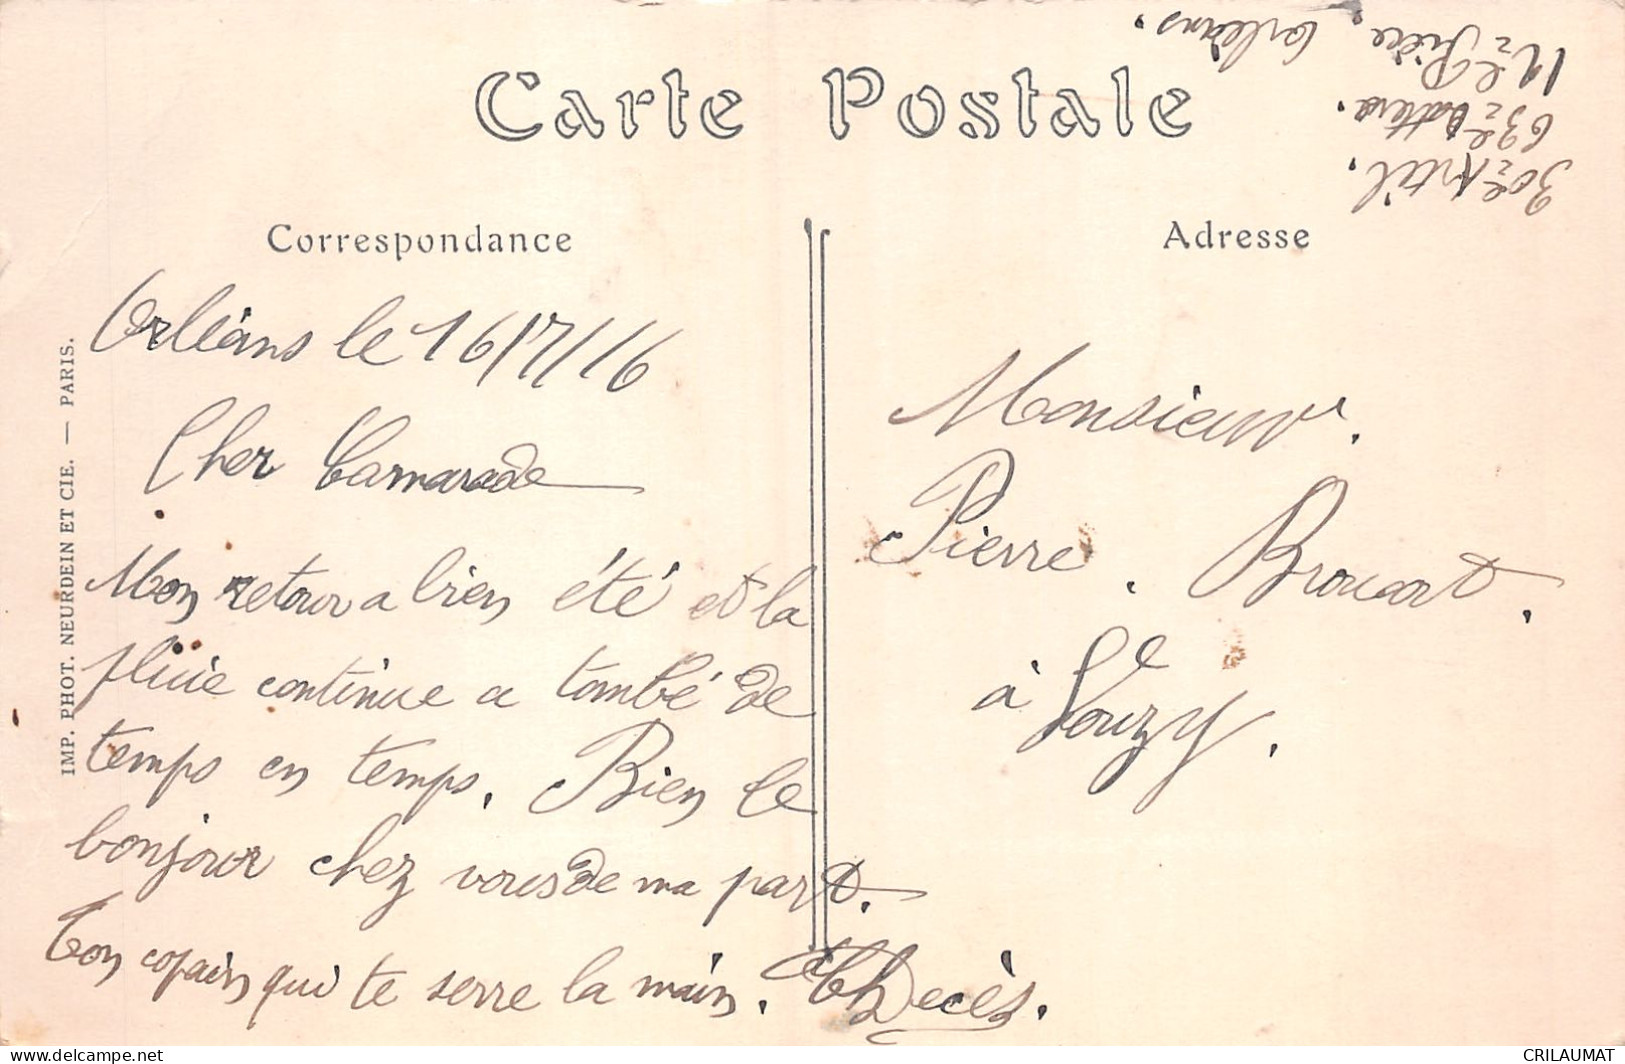 Carte Postale
30e Artil.
63e batterie.
12e Pièce, Orléans.
Correspondance
Adresse
Orléans le 16/7/16
Cher Camarade
Mon retour a bien été et la
pluie continue a tombé de
temps en temps. Bien le
bonjour chez vous de ma part.
Ton copain qui te serre la main.
Decès.
Monsieur.
Pierre. Broucart.
à Souzy.
IMP. PHOT. NEURDEIN ET CIE. — PARIS.
delcampe.net
CRILAUMAT